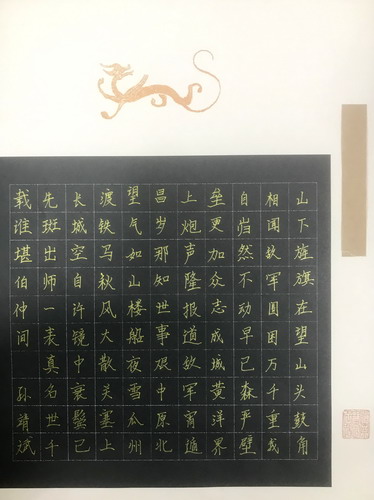 山下旌旗在望山头鼓角
相闻敌军围困万千重我
自岿然不动早已森严壁
垒更加众志成城黄洋界
上炮声隆报道敌军宵遁
早岁那知世事艰中原北
望气如山楼船夜雪瓜州
渡铁马秋风大散关塞上
长城空自许镜中衰鬓已
先斑出师一表真名世千
载谁堪伯仲间 孙靖斌